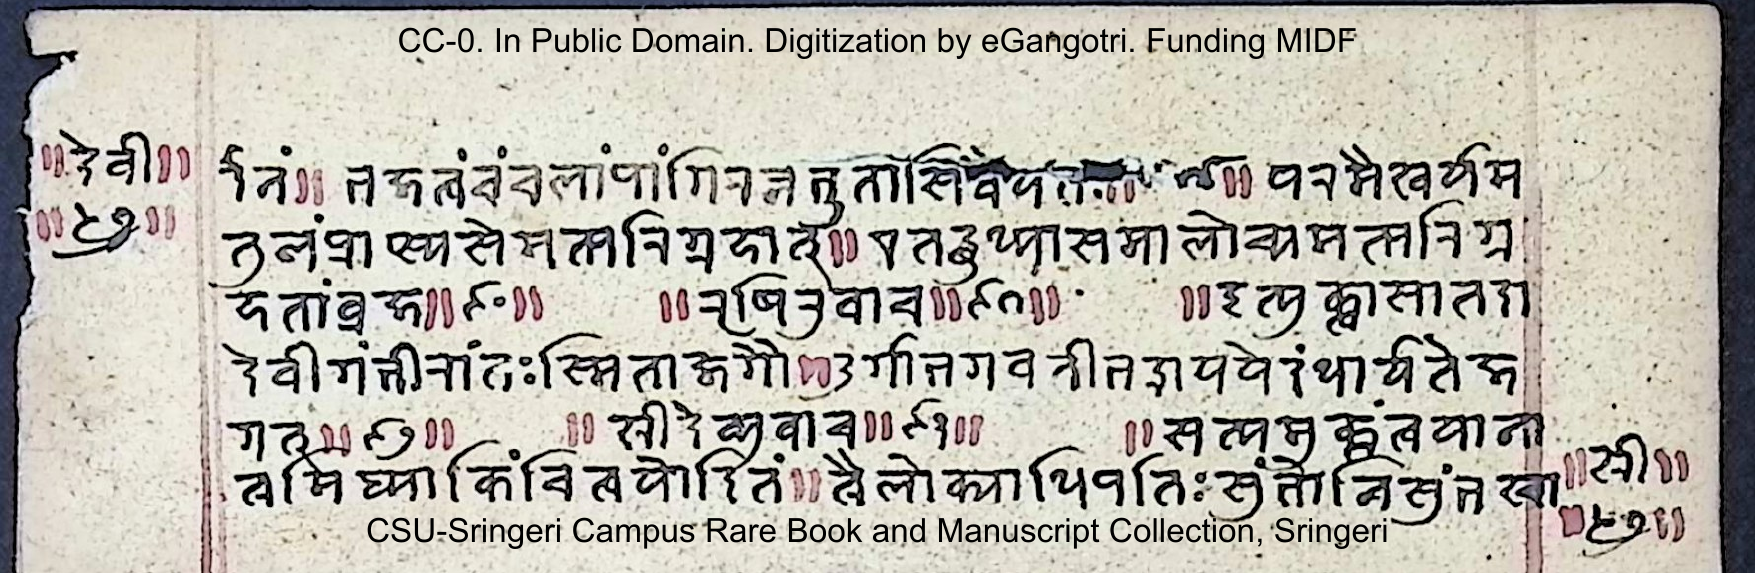 CC-0. In Public Domain. Digitization by eGangotri. Funding MIDF
॥देवी॥
नं॥ भजत्वंचंचलापांगिरत्नभूतासिवैयतः॥ परमैश्वर्यम
तुलंप्राप्स्यसेमत्परिग्रहात्॥ एतद्बुध्यासमालोच्यमत्परिग्र
हतांव्रज॥ ॥ऋषिरुवाच॥ ॥इत्युक्त्वासातदा
देवीगंभीरांतःस्मिताजगौ॥दुर्गाभगवतीभद्राययेदंधार्यतेज
गत्॥ ॥श्रीदेव्युवाच॥ ॥सत्यमुक्तंत्वयाना
त्रमिथ्याकिंचित्वयोदितं॥त्रैलोक्याधिपतिःसुंभोनिसुंभश्चा
॥श्री॥
CSU-Sringeri Campus Rare Book and Manuscript Collection, Sringeri